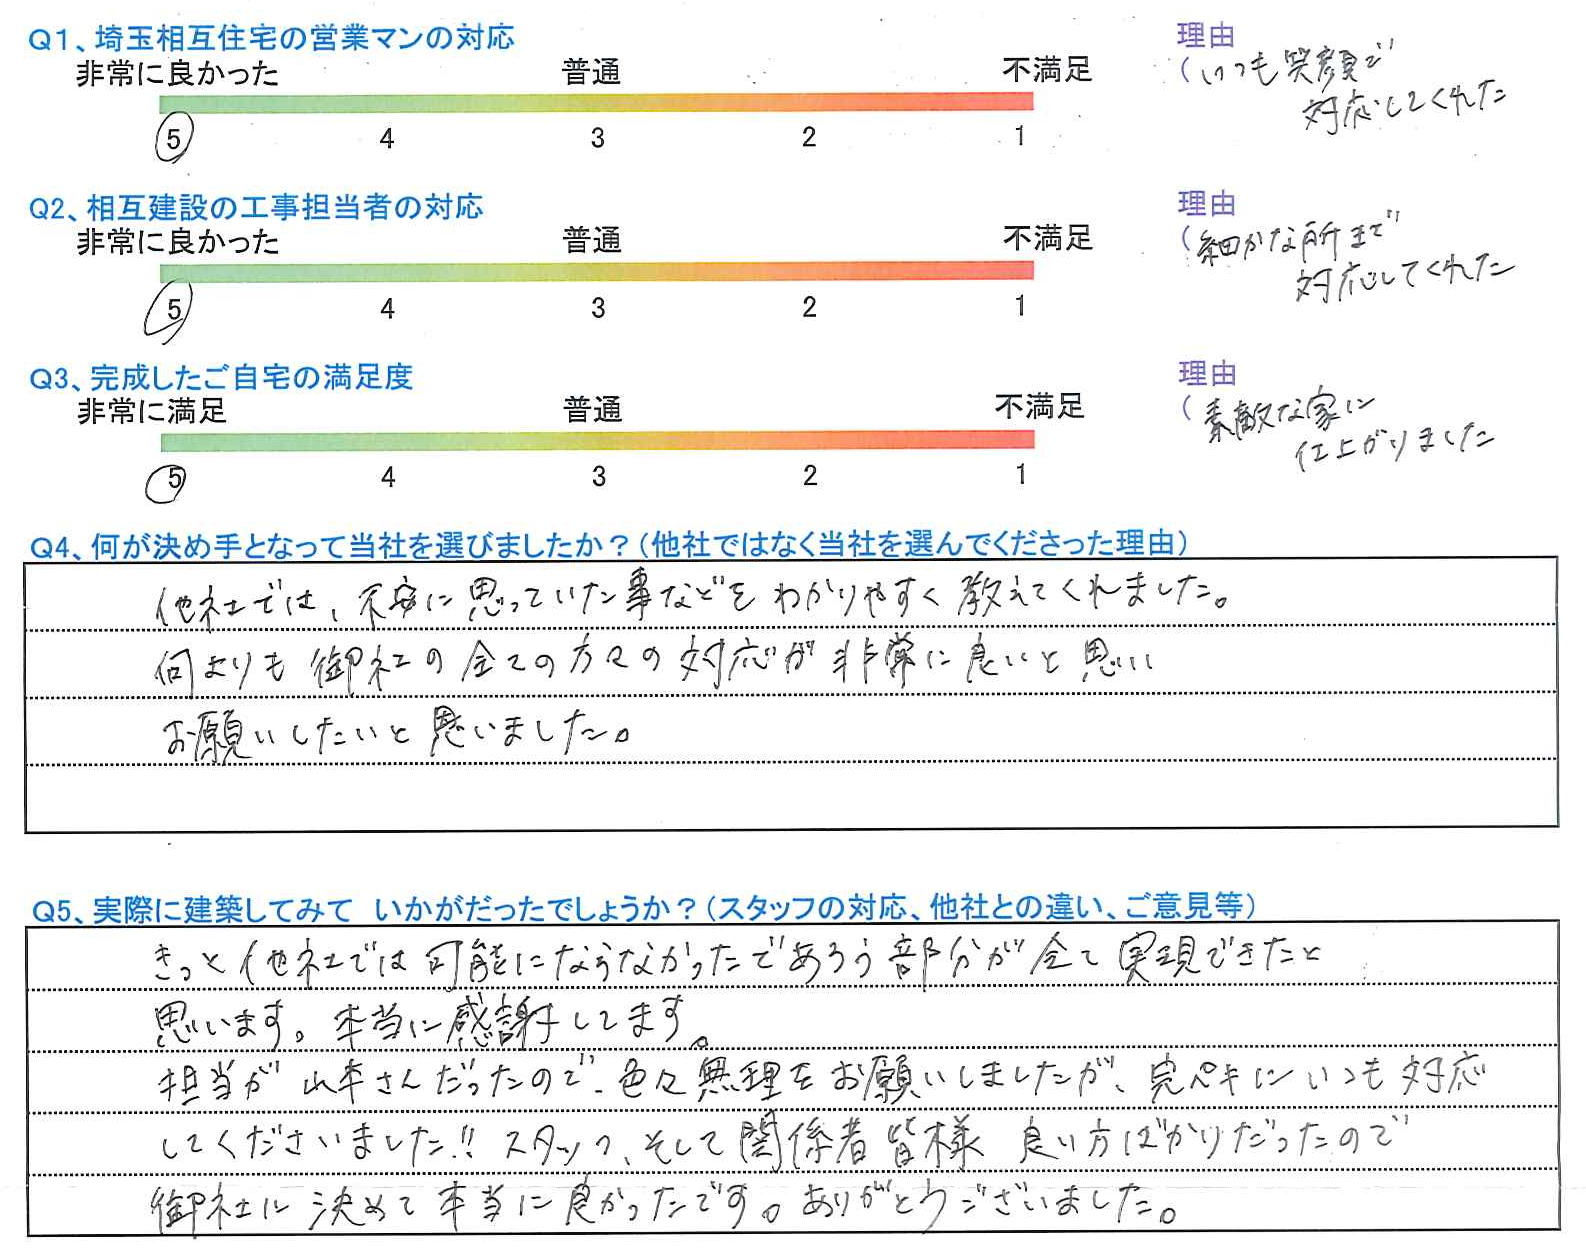 Q1、埼玉相互住宅の営業マンの対応
非常に良かった 普通 不満足
5 4 3 2 1
理由
(いつも笑顔で
対応してくれた
Q2、相互建設の工事担当者の対応
非常に良かった 普通 不満足
5 4 3 2 1
理由
(細かな所まで
対応してくれた
Q3、完成したご自宅の満足度
非常に満足 普通 不満足
5 4 3 2 1
理由
(素敵な家に
仕上がりました
Q4、何が決め手となって当社を選びましたか？(他社ではなく当社を選んでくださった理由)
他社では、不安に思っていた事などをわかりやすく教えてくれました。
何よりも御社の全ての方々の対応が非常に良いと思い
お願いしたいと思いました。
Q5、実際に建築してみて いかがだったでしょうか？(スタッフの対応、他社との違い、ご意見等)
きっと他社では可能にならなかったであろう部分が全て実現できたと
思います。本当に感謝してます。
担当が山本さんだったので、色々無理をお願いしましたが、完ペキにいつも対応
してくださいました!! スタッフ、そして関係者皆様 良い方ばかりだったので
御社に決めて本当に良かったです。ありがとうございました。